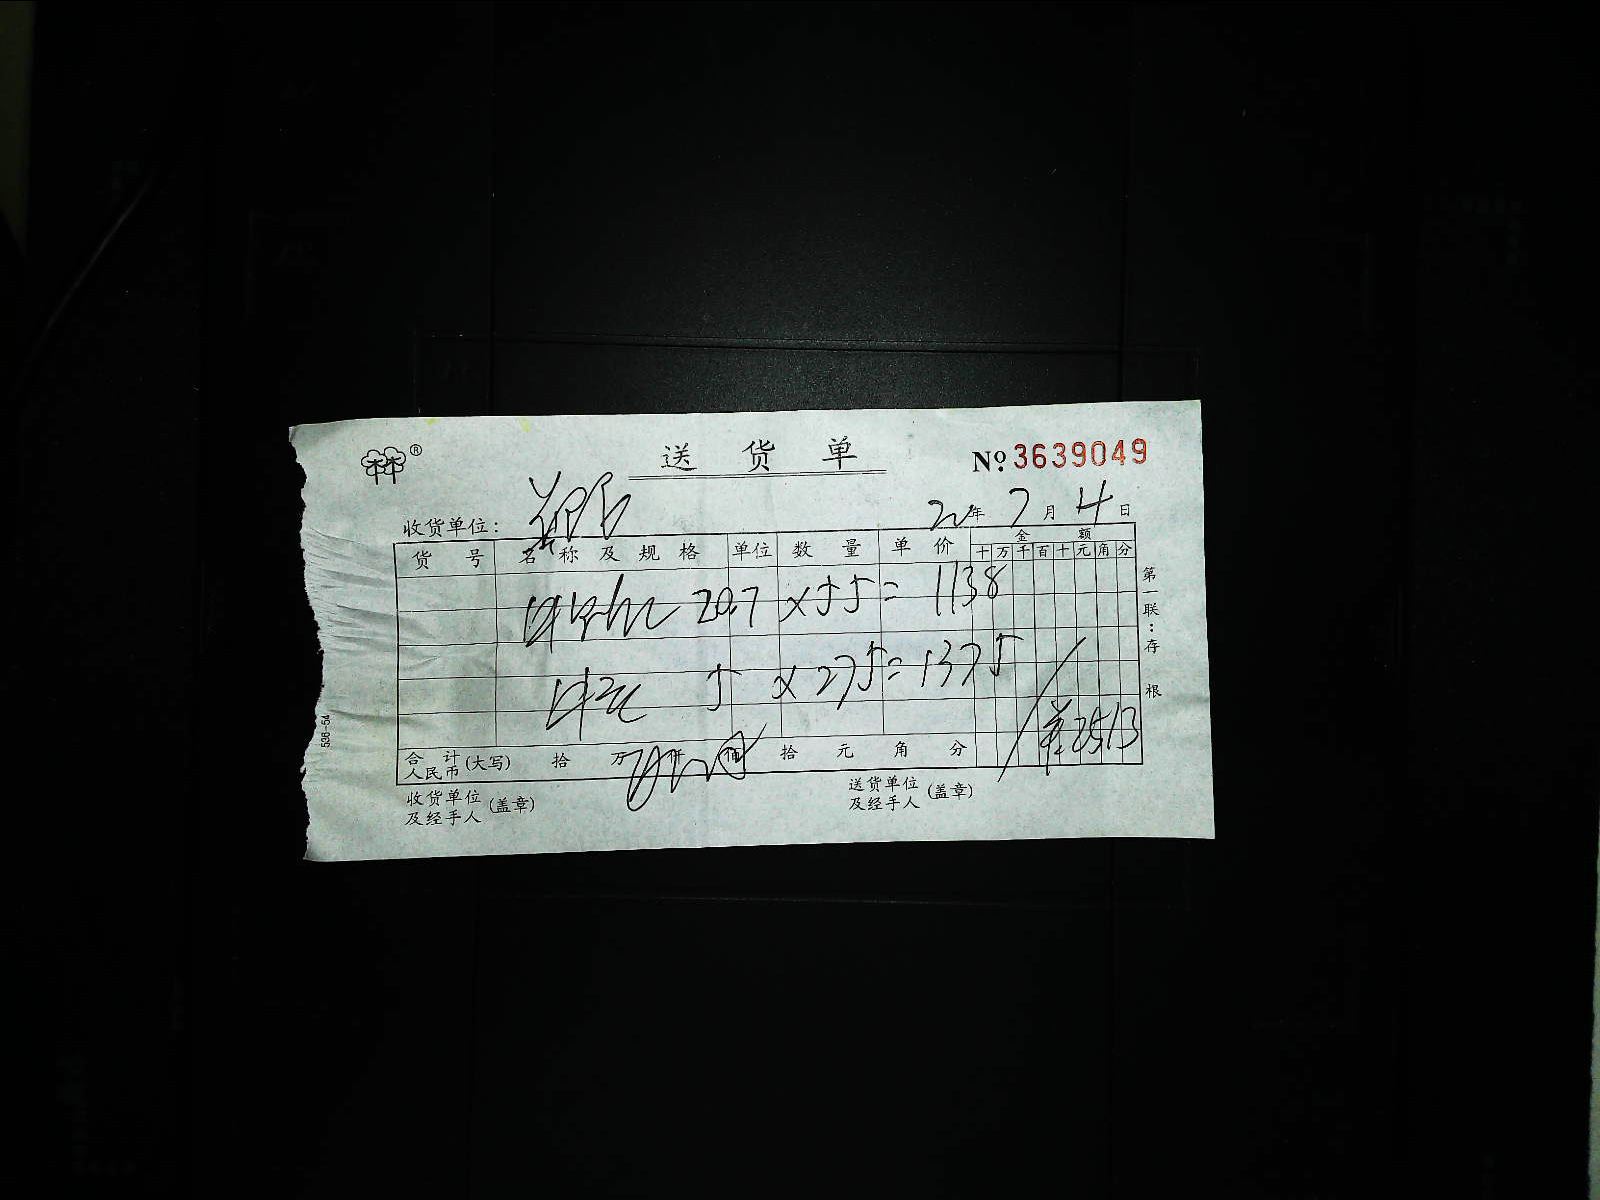 ®
送 货 单
Nº 3639049
收货单位:
20年 7 月 4 日
货 号 名 称 及 规 格 单位 数 量 单 价 金 额
十 万 千 百 十 元 角 分
20.7 × 55 = 1138
5 × 275 = 1375
2513
合 计 人民币 (大写) 拾 万 仟 佰 拾 元 角 分
收货单位及经手人 (盖章)
送货单位及经手人 (盖章)
第一联:存根
536-54